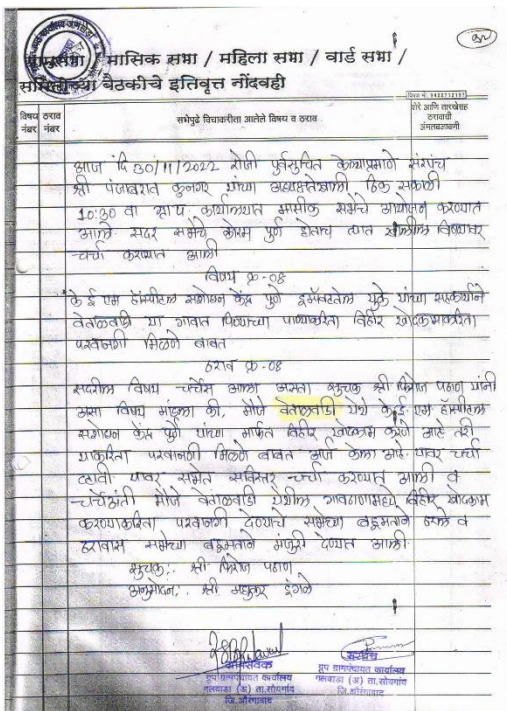 ३२
ग्रामसभा / मासिक सभा / महिला सभा / वार्ड सभा /
समितीच्या बैठकीचे इतिवृत्त नोंदवही
विषय नंबर
ठराव नंबर
सभेपुढे विचाराकरीता आलेले विषय व ठराव
शेरे आणि तारखेसह ठरावाची अंमलबजावणी
आज दि 30/11/2022 रोजी पुर्वसुचित केल्याप्रमाणे सरपंच
श्री पंजाबराव कुनगर यांच्या अध्यक्षतेखाली ठिक सकाळी
10:30 वा ग्राप कार्यालयात मासीक सभेचे आयोजन करण्यात
आले. सदर सभेचे कोरम पुर्ण होताच त्यात खालील विषयावर
चर्चा करण्यात आली
विषय क्र-08
के ई एम हॉस्पीटल संशोधन केंद्र पुणे यांच्या सहकार्याने
वेताळवाडी या गावात पिण्याच्या पाण्याकरिता विहीर खोदकामाकरिता
परवानगी मिळणे बाबत
ठराव क्र-08
सदरील विषय चर्चेस आला असता सुचक श्री फिरोज पठाण यांनी
असा विषय मांडला की, मौजे वेताळवाडी येथे के.ई.एम हॉस्पीटल
संशोधन केंद्र पुणे यांच्या मार्फत विहीर खोदकाम करणे आहे तरी
याकरिता परवानगी मिळणे बाबत अर्ज केला आहे. यावर चर्चा
व्हावी. यावर सभेत सविस्तर चर्चा करण्यात आली व
चर्चेअंती मौजे वेताळवाडी येथील गावठाणामध्ये विहीर खोदकाम
करण्याकरिता परवानगी देण्याचे सभेच्या बहुमताने ठरले व
ठरावास सभेच्या बहुमताने मंजुरी देण्यात आली.
सुचक:. श्री फिरोज पठाण
अनुमोदन:. श्री मधुकर इंगळे
ग्रामसेवक
ग्रुप ग्रामपंचायत कार्यालय
गलवाडा (अ) ता.सोयगांव
जि.औरंगाबाद
सरपंच
ग्रुप ग्रामपंचायत कार्यालय
गलवाडा (अ) ता.सोयगांव
जि.औरंगाबाद